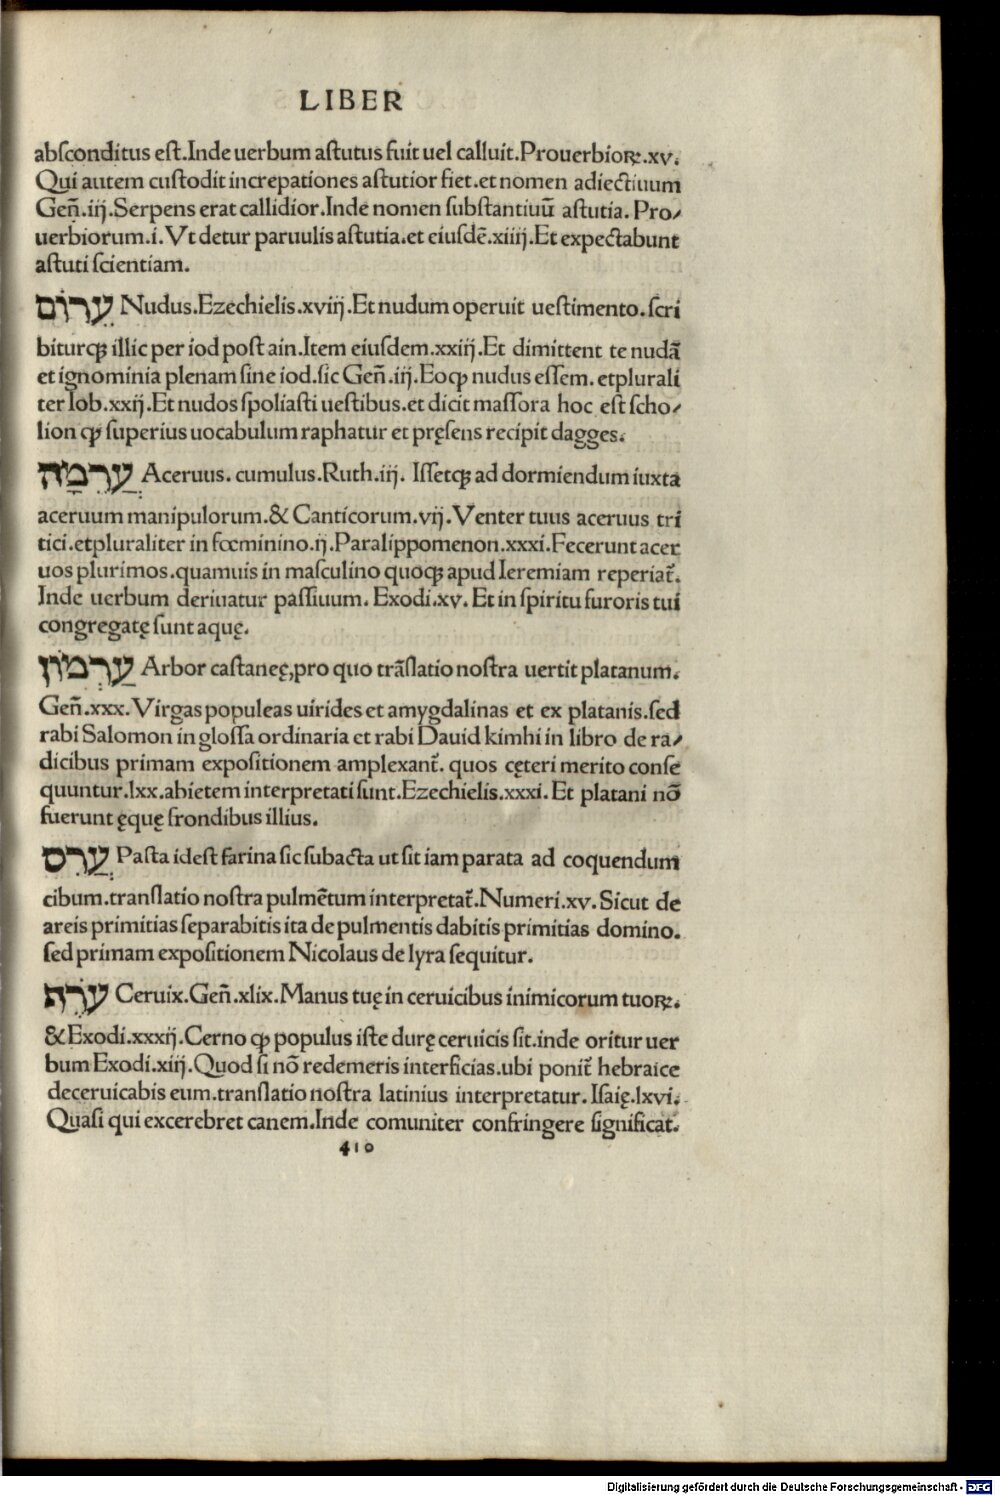 LIBER
abſconditus eſt.Inde uerbum aſtutus fuit uel calluit.Prouerbioꝝ.xv.
Qui autem cuſtodit increpationes aſtutior fiet.et nomen adiectiuum
Geñ.iij.Serpens erat callidior.Inde nomen ſubſtantiuū aſtutia. Pro⸗
uerbiorum.i. Vt detur paruulis aſtutia.et eiuſdē.xiiij.Et expectabunt
aſtuti ſcientiam.
עֵרוֹם Nudus.Ezechielis.xviij.Et nudum operuit ueſtimento.ſcri
biturqꝫ illic per iod poſt ain.Item eiuſdem.xxiij.Et dimittent te nudā
et ignominia plenam ſine iod.ſic Geñ.iij.Eoꝙ nudus eſſem. etplurali
ter Iob.xxij.Et nudos ſpoliaſti ueſtibus.et dicit maſſora hoc eſt ſcho⸗
lion ꝙ ſuperius uocabulum raphatur et pręſens recipit dagges.
עֲרֵמָה Aceruus. cumulus.Ruth.iij. Iſſetqꝫ ad dormiendum iuxta
aceruum manipulorum.& Canticorum.vij.Venter tuus aceruus tri
tici.etpluraliter in fœminino.ij.Paralippomenon.xxxi.Fecerunt acer
uos plurimos.quamuis in maſculino quoqꝫ apud Ieremiam reperiat̃.
Inde uerbum deriuatur paſſiuum. Exodi.xv. Et in ſpiritu furoris tui
congregatę ſunt aquę.
עַרְמוֹן Arbor caſtaneę,pro quo trāſlatio noſtra uertit platanum.
Geñ.xxx.Virgas populeas uirides et amygdalinas et ex platanis.ſed
rabi Salomon in gloſſa ordinaria et rabi Dauid kimhi in libro de ra⸗
dicibus primam expoſitionem amplexant̃. quos cęteri merito conſe
quuntur.lxx.abietem interpretati ſunt.Ezechielis.xxxi. Et platani nō
fuerunt ęquę frondibus illius.
עֲרִס Paſta ideſt farina ſic ſubacta ut ſit iam parata ad coquendum
cibum.tranſlatio noſtra pulmētum interpretat̃.Numeri.xv. Sicut de
areis primitias ſeparabitis ita de pulmentis dabitis primitias domino.
ſed primam expoſitionem Nicolaus de lyra ſequitur.
עֹרֶף Ceruix.Geñ.xlix.Manus tuę in ceruicibus inimicorum tuoꝝ.
&Exodi.xxxij.Cerno ꝙ populus iſte durę ceruicis ſit.inde oritur uer
bum Exodi.xiij.Quod ſi nō redemeris interficias.ubi ponit̃ hebraice
deceruicabis eum.tranſlatio noſtra latinius interpretatur. Iſaię.lxvi.
Quaſi qui excerebret canem.Inde comuniter confringere ſignificat.
410
Digitalisierung gefördert durch die Deutsche Forschungsgemeinschaft - DFG